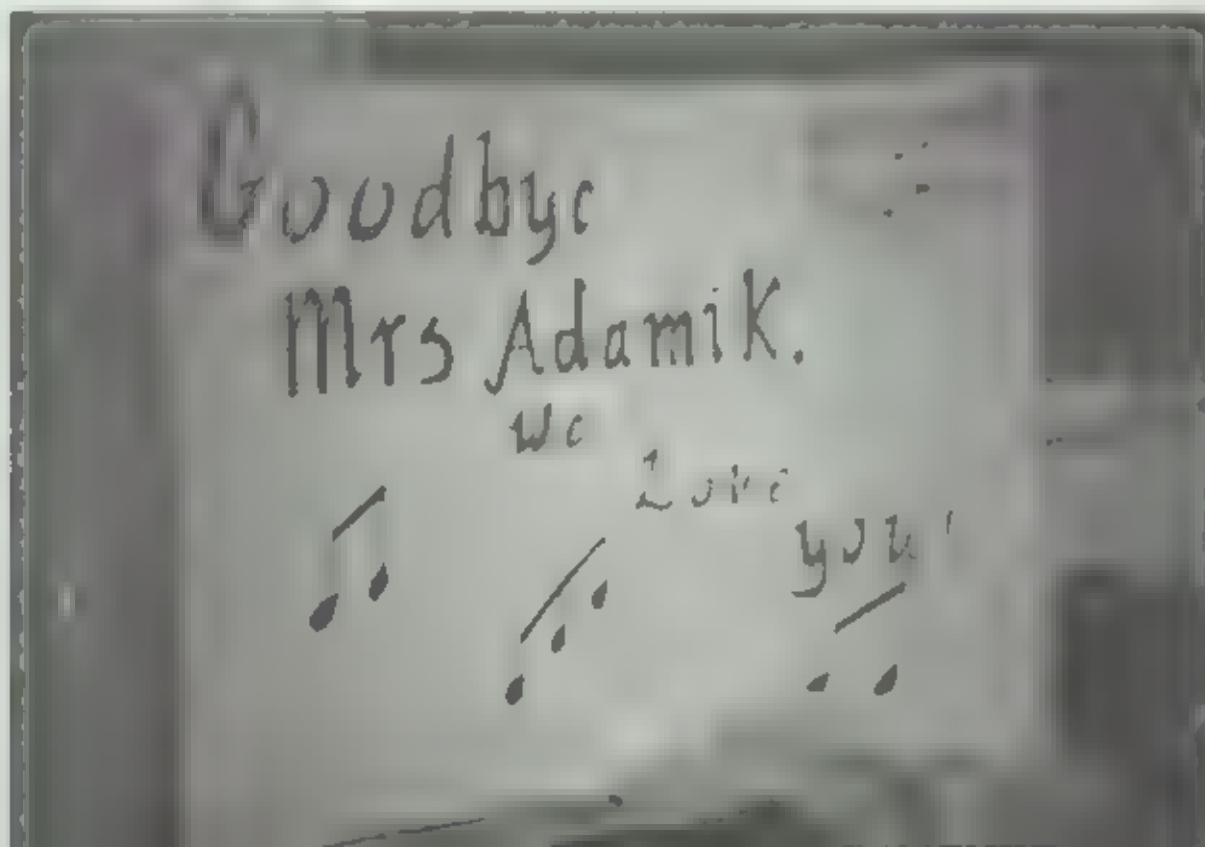 Goodbye
Mrs Adamik.
We
Love
you!